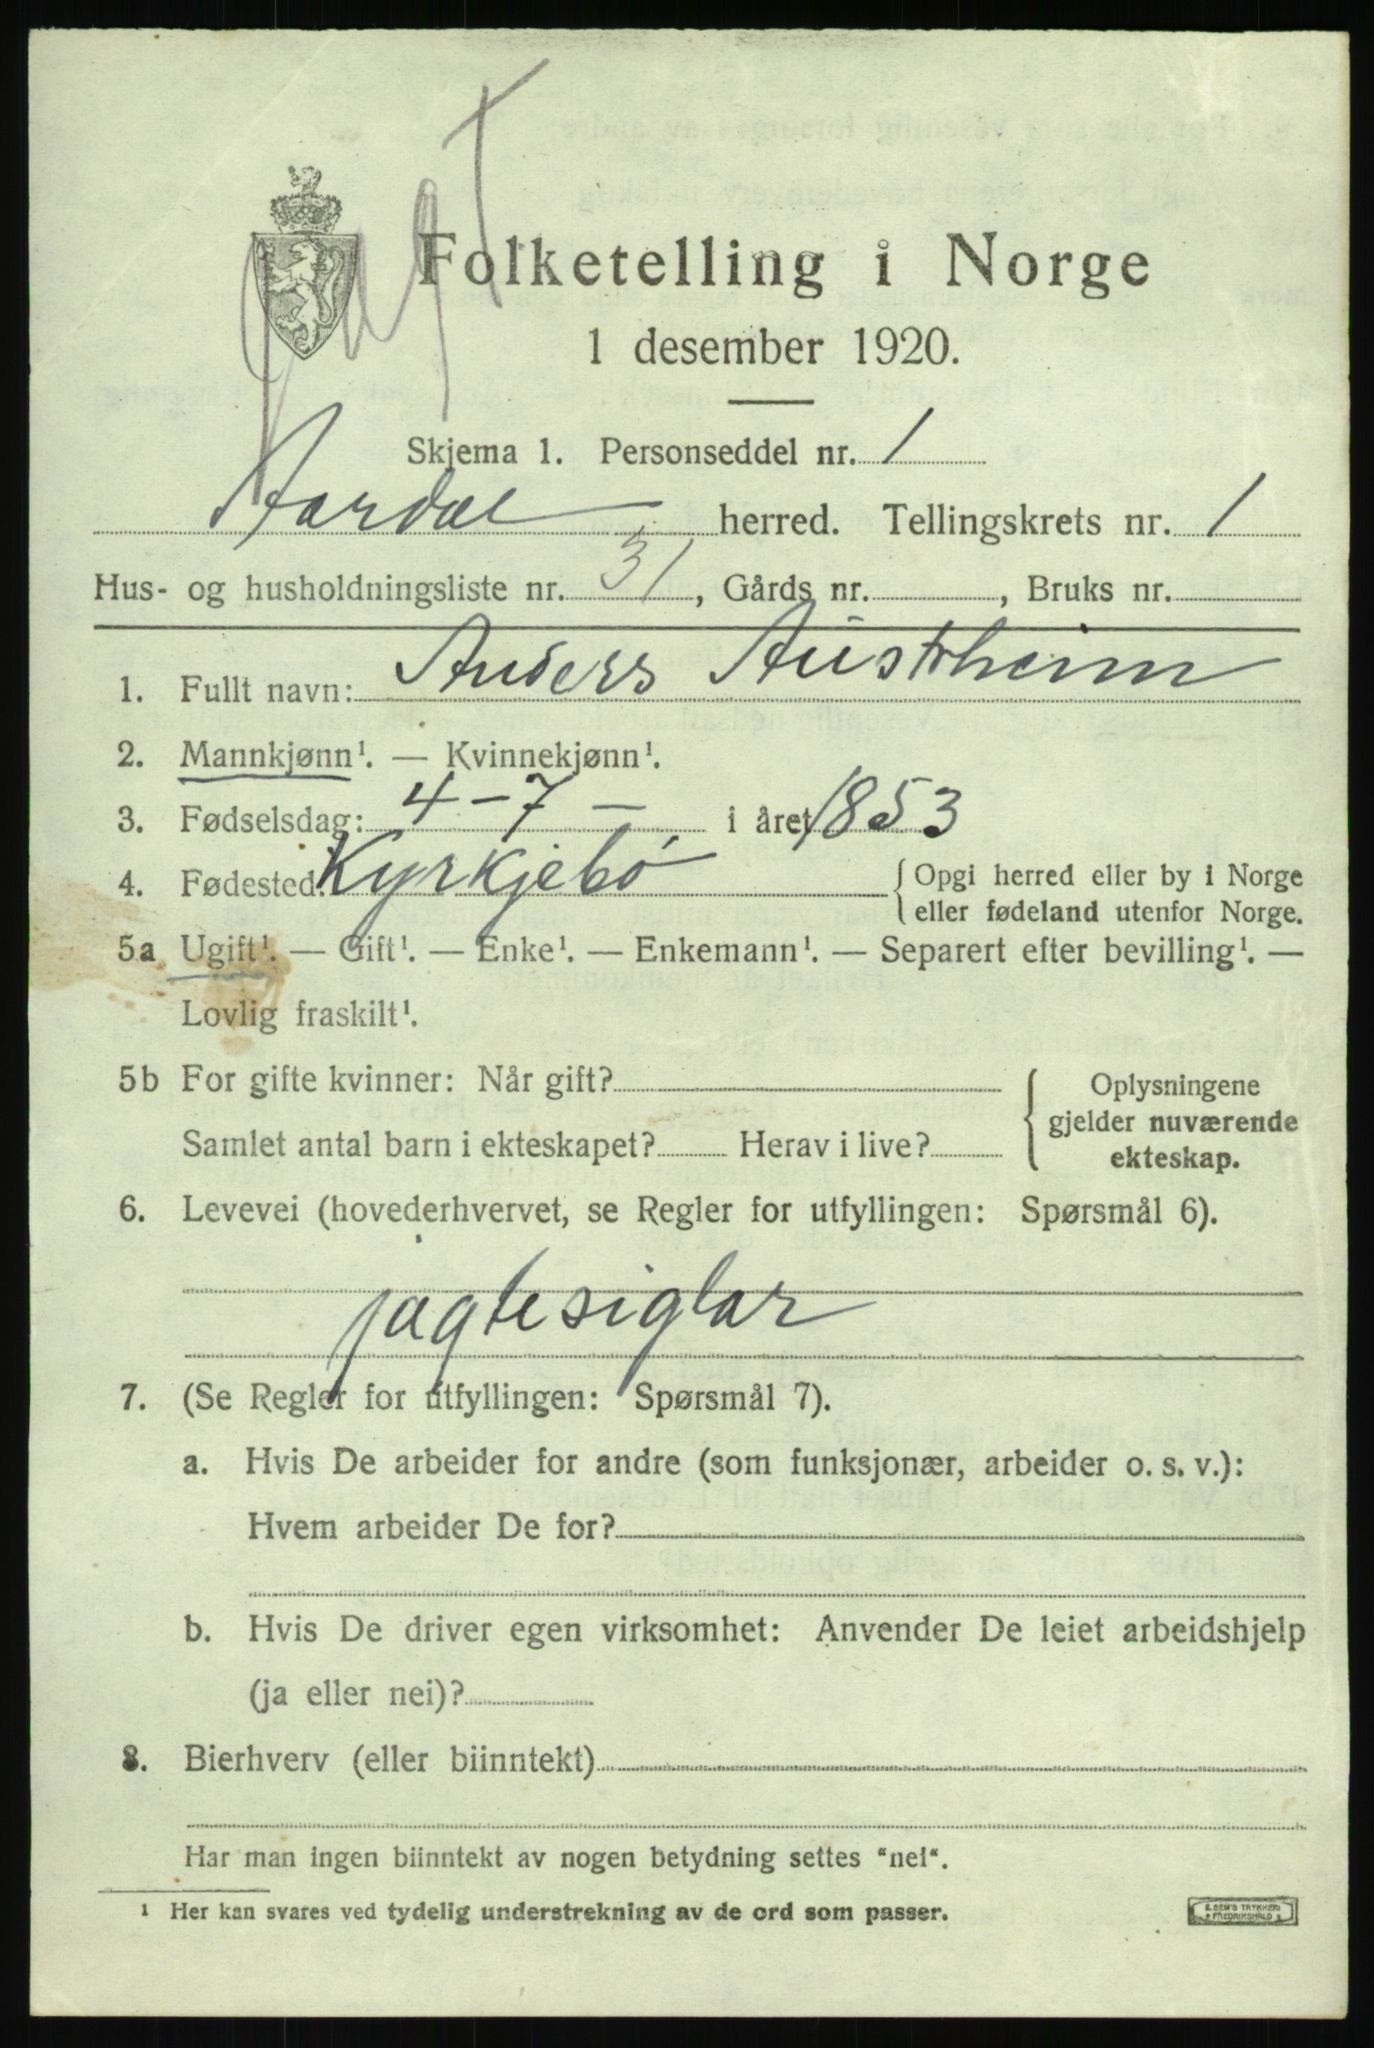 Folketelling i Norge
1 desember 1920.
Skjema 1. Personseddel nr. 1
Aardal herred. Tellingskrets nr. 1
Hus- og husholdningsliste nr. 31, Gårds nr. , Bruks nr.
1. Fullt navn: Anders Austrheim
2. Mannkjønn¹. — Kvinnekjønn¹.
3. Fødselsdag: 4 – 7 – i året 1853
4. Fødested: Kyrkjebö {Opgi herred eller by i Norge
eller fødeland utenfor Norge.
5a Ugift¹. — Gift¹. — Enke¹. — Enkemann¹. — Separert efter bevilling¹. —
Lovlig fraskilt¹.
5b For gifte kvinner: Når gift? { Oplysningene
gjelder nuværende
Samlet antal barn i ekteskapet? Herav i live? ekteskap.
6. Levevei (hovederhvervet, se Regler for utfyllingen: Spørsmål 6).
jagtesiglar
7. (Se Regler for utfyllingen: Spørsmål 7).
a. Hvis De arbeider for andre (som funksjonær, arbeider o. s. v.):
Hvem arbeider De for?
b. Hvis De driver egen virksomhet: Anvender De leiet arbeidshjelp
(ja eller nei)?
8. Bierhverv (eller biinntekt)
Har man ingen biinntekt av nogen betydning settes "nei".
¹ Her kan svares ved tydelig understrekning av de ord som passer.
E. SEM'S TRYKKERI
FREDRIKSHALD